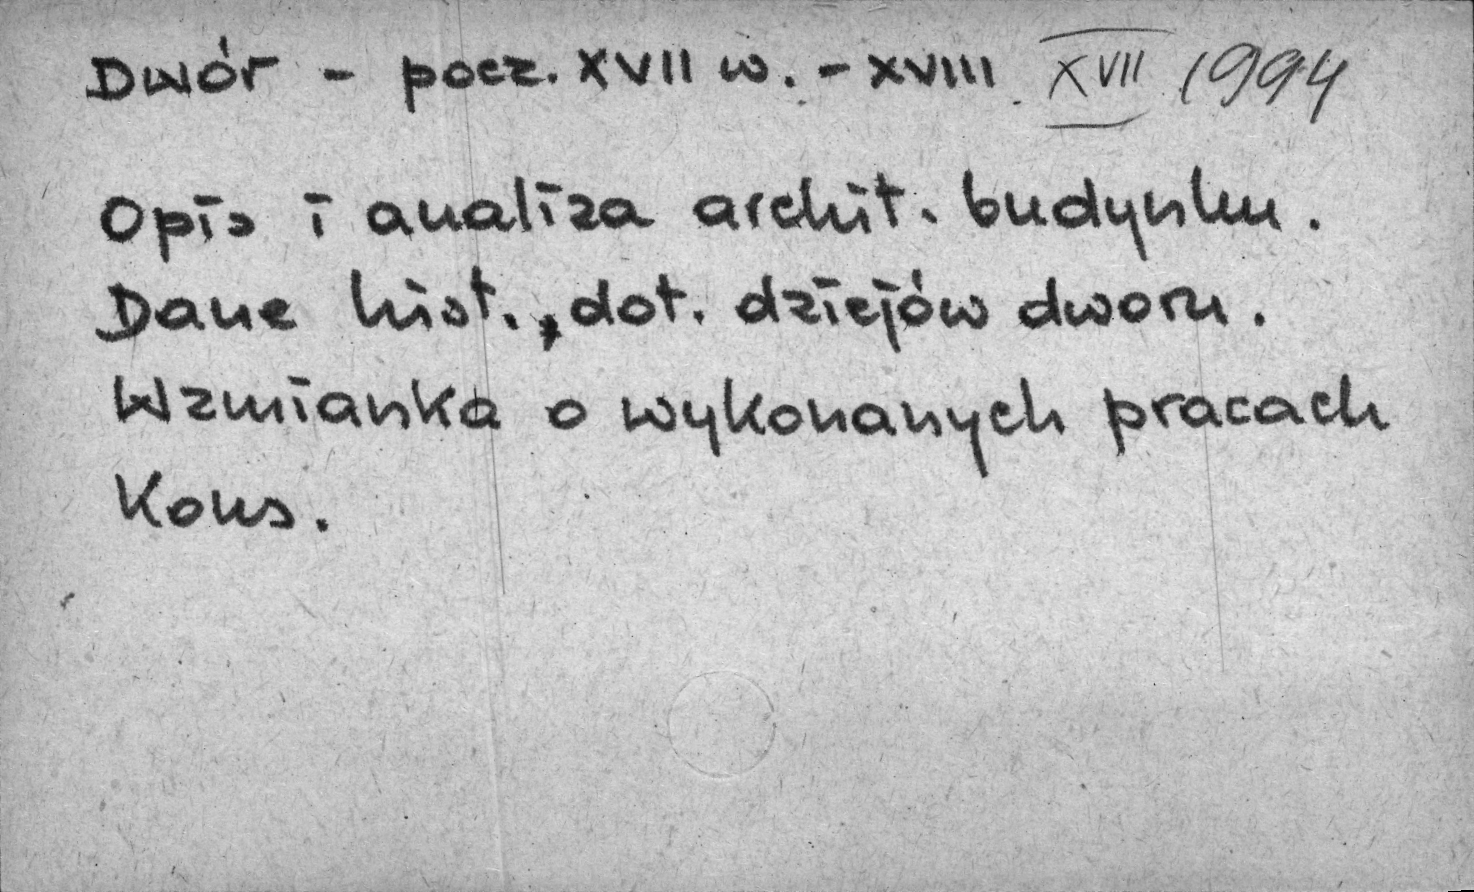 Dwór - pocz. XVII w. - XVIII XVII 1994
Opis i analiza archit. budynku.
Dane hist., dot. dziejów dworu.
Wzmianka o wykonanych pracach
Kons.